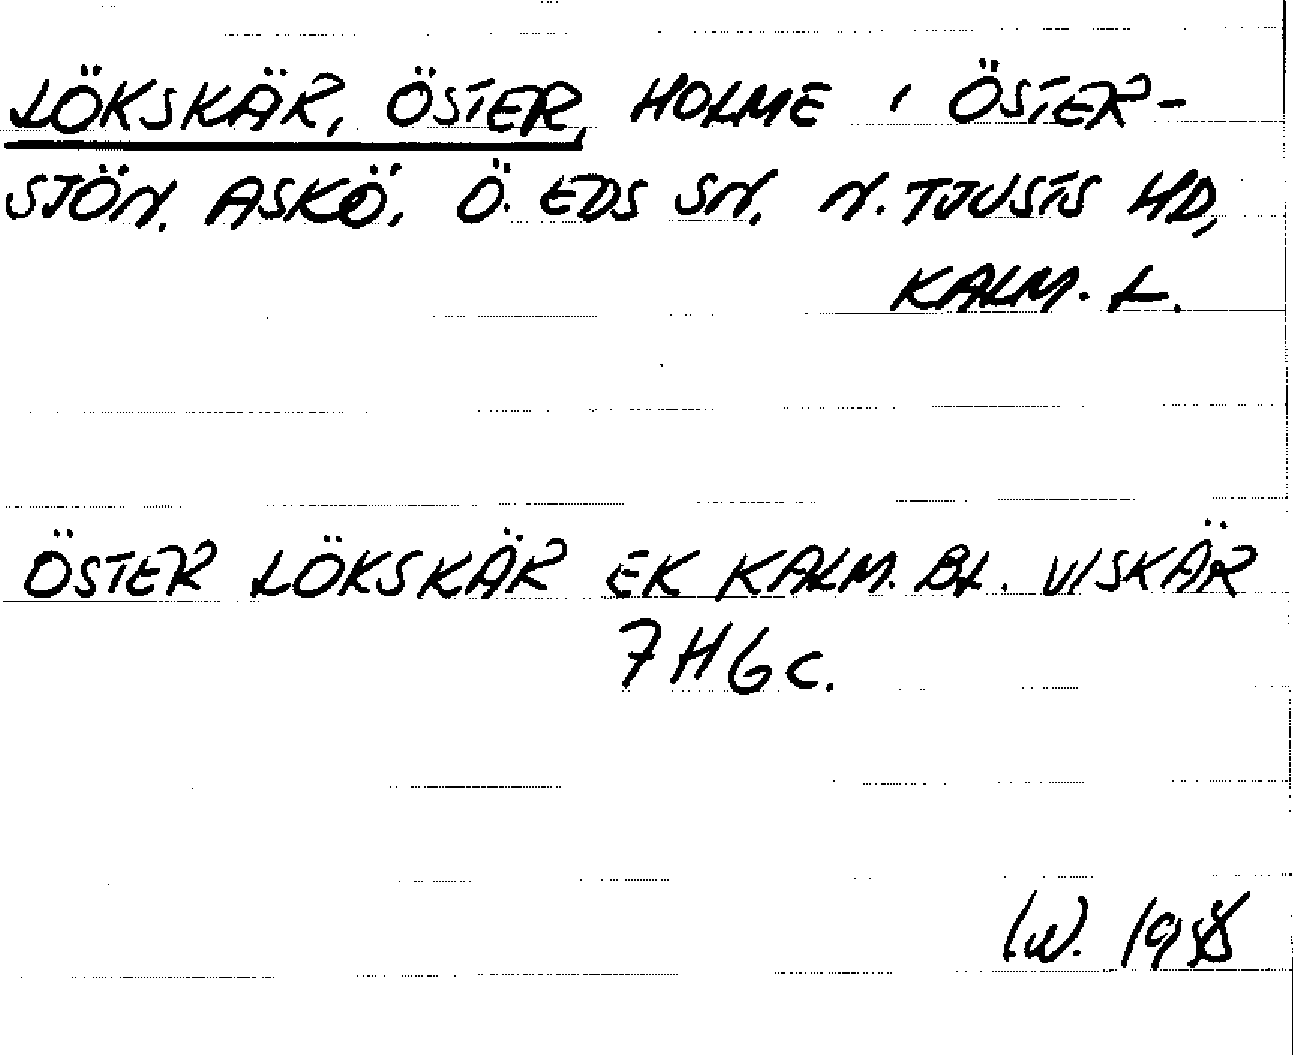 LÖKSKÄR, ÖSTER, HOLME I ÖSTER-
SJÖN. ASKÖ, Ö. EDS SN, N. TJUSTS HD,
KALM. L.
ÖSTER LÖKSKÄR EK KALM. BL. VISKÄR
7H6c.